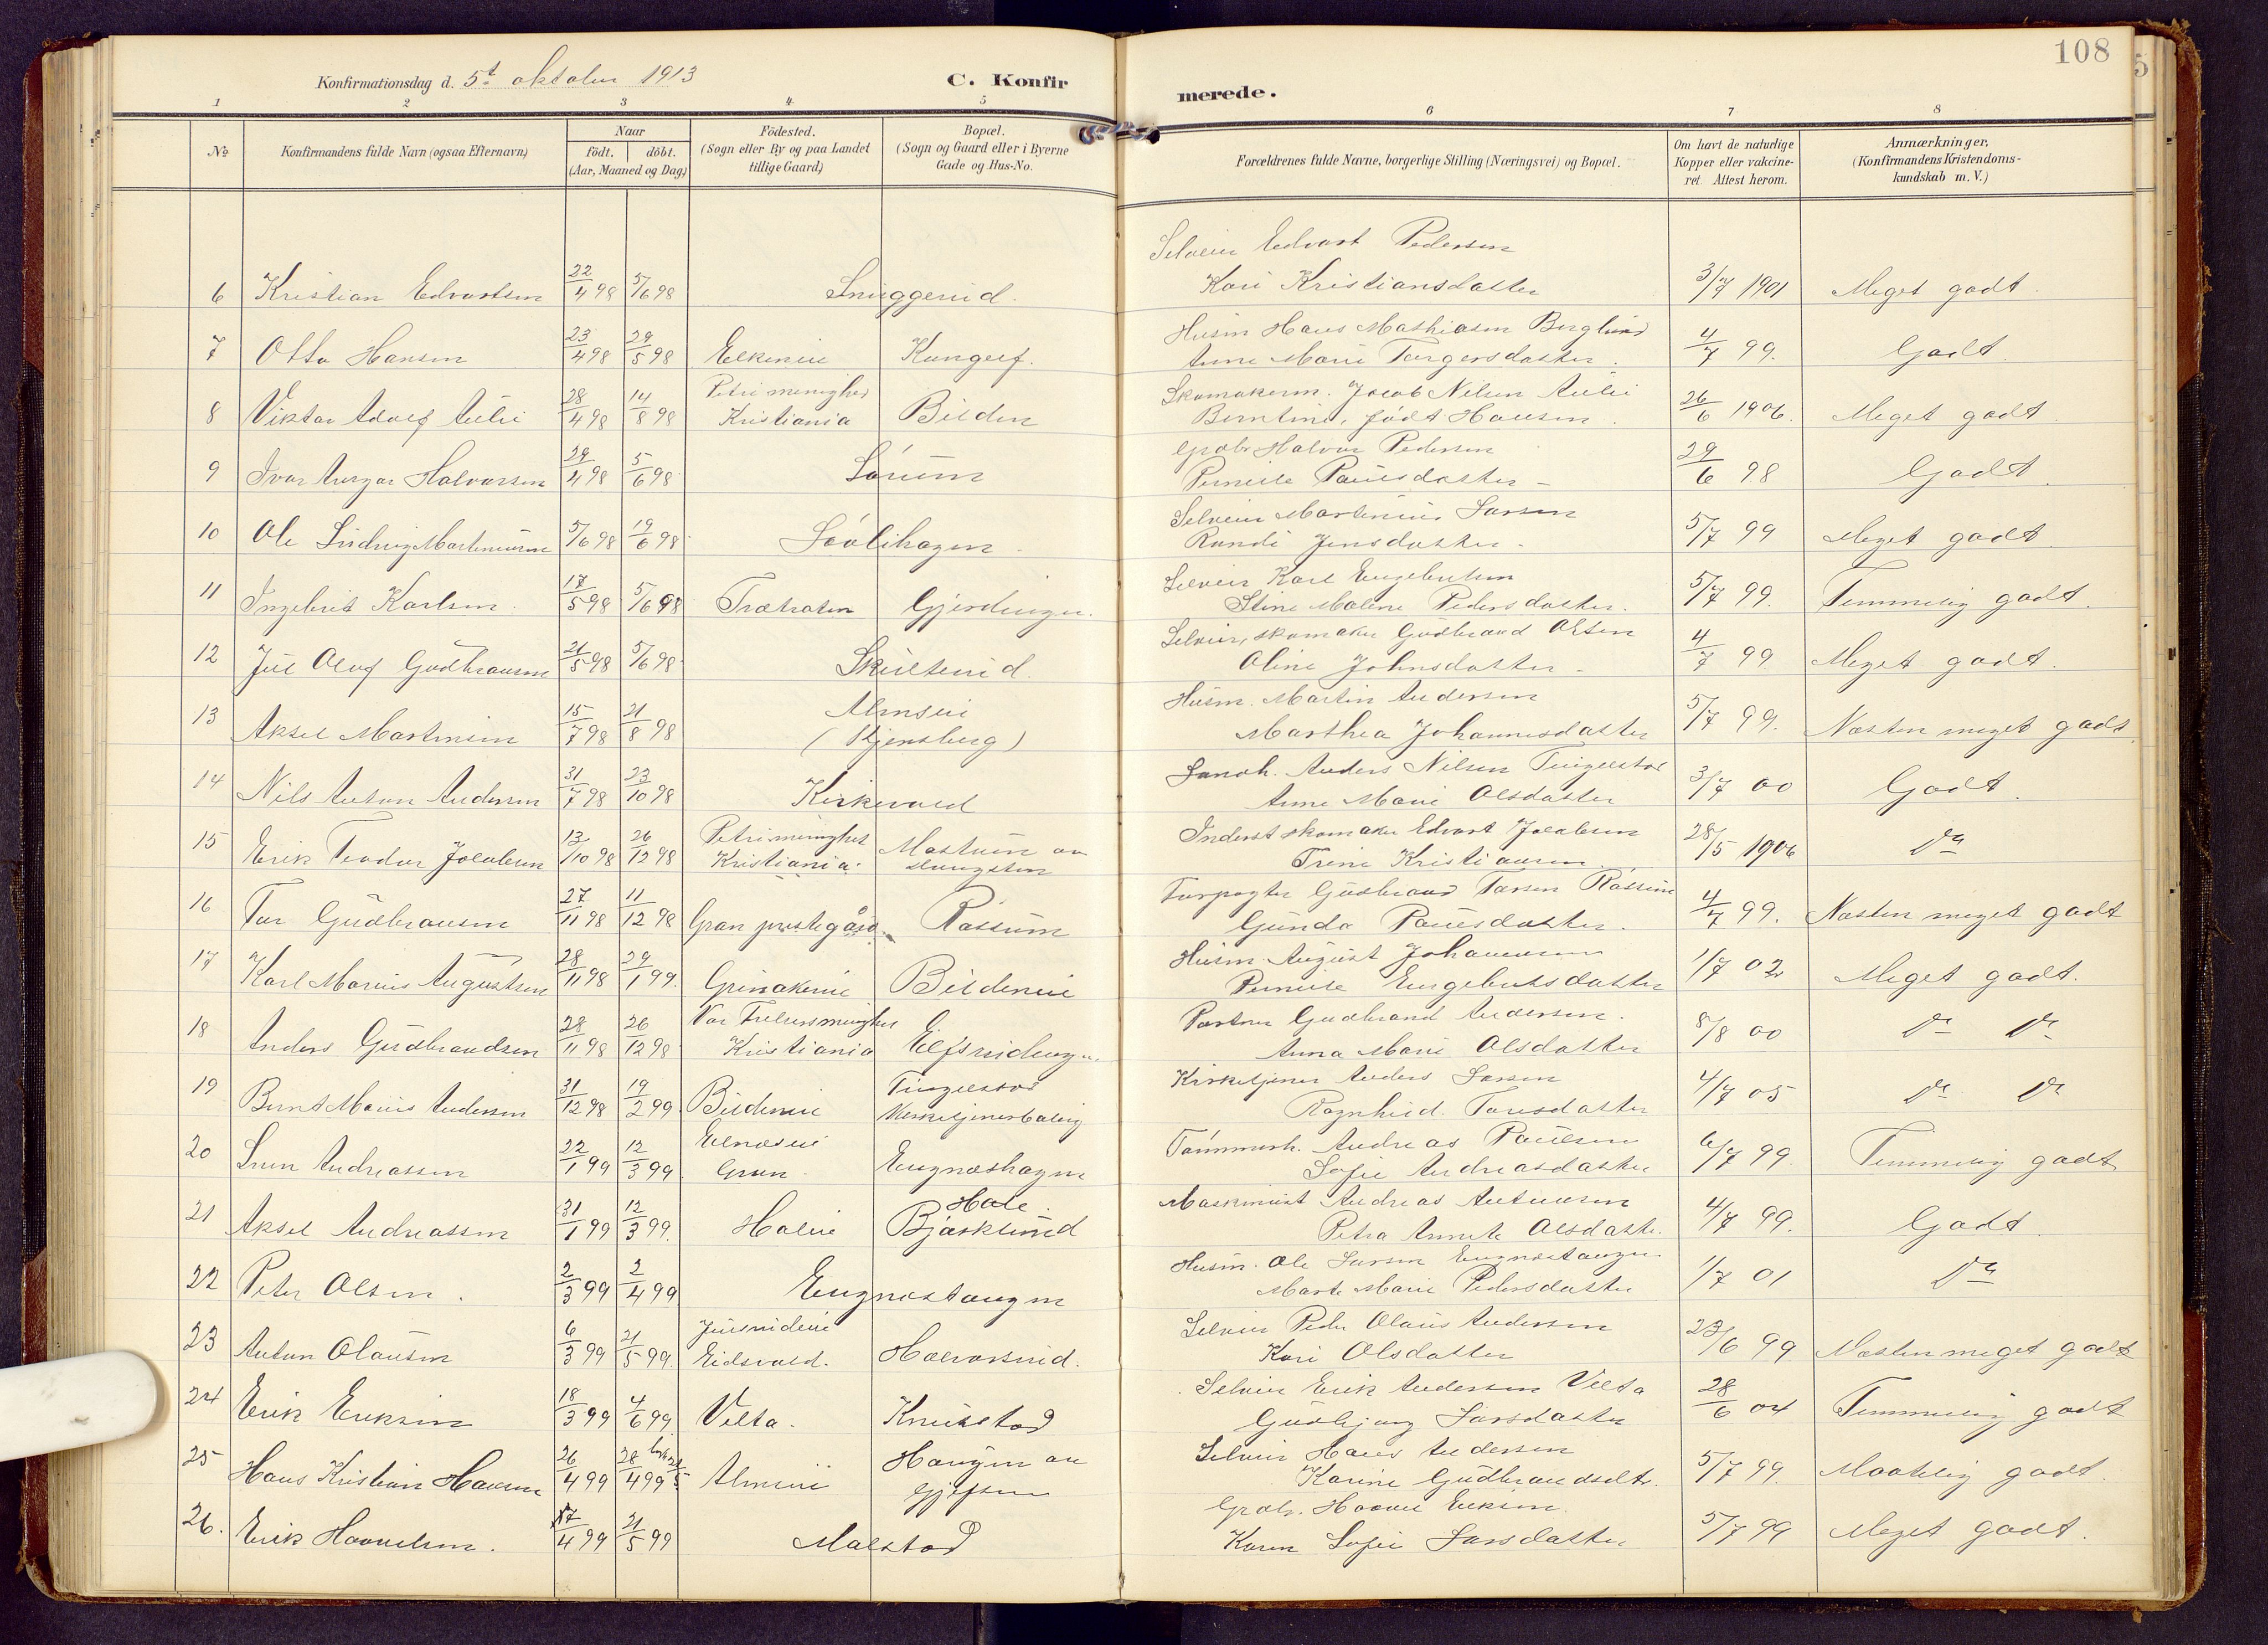 108
Konfirmationsdag d. 5t oktober 1913
C. Konfirmerede.
1 2 3 4 5 6 7 8
No
Konfirmandens fulde Navn (ogsaa Efternavn)
Naar
födt. döbt.
(Aar, Maaned og Dag)
Födested.
(Sogn eller By og paa Landet
tillige Gaard)
Bopæl.
(Sogn og Gaard eller i Byerne
Gade og Hus-No.
Forældrenes fulde Navne, borgerlige Stilling (Næringsvei) og Bopæl.
Om havt de naturlige
Kopper eller vakcine-
ret Attest herom.
Anmærkninger.
(Konfirmandens Kristendoms-
kundskab m. V.)
Selveier Edvart Pedersen
6 Kristian Edvartsen 22/4 98 5/6 98 Snuggerud. Kari Kristiansdatter 3/7 1901 Meget godt.
Husm Hans Mathiasen Berglund
7 Otto Hansen 23/4 98 29/5 98 Anne Marie Torgersdatter. 4/7 99. Godt.
Petri menighed Skomakerm. Jacob Nilsen Aulie
8 Viktor Adolf Aulie 28/4 98 14/8 98 Kristiania Bilden Berntine, født Hansen. 26/6 1906. Meget godt.
Grdbr Halvor Pedersen
9 Ivar Ansgar Halvorsen 29/4 98 5/6 98 Sørum Pernille Paulsdatter - 29/6 98 Godt.
Selveier Martinius Larsen
10 Ole Ludvig Martiniusen 5/6 98 19/6 98 Randi Jensdatter - 5/7 99 Meget godt.
Selveier Karl Engebretsen
11 Ingebrit Karlsen. 17/5 98 5/6 98 Gjerdingen. Stine Malene Pedersdatter. 5/7 99. Temmelig godt.
Selveier, skomaker Gudbrand Olsen
12 Jul Oluf Gudbransen 21/5 98 5/6 98 Skulterud. Oline Johnsdatter - 4/7 99 Meget godt.
Husm. Martin Andersen
13 Aksel Martinsen 15/7 98 21/8 98 Marthea Johannesdatter 5/7 99. Næsten meget godt
Landh. Anders Nilsen Tingelstad
14 Nils Anton Andersen 31/7 98 23/10 98 Anne Marie Olsdatter 3/7 00 Godt.
Petri menighet Inderst skomaker Edvart Jacobsen
15 Erik Teodor Jacobsen 13/10 98 26/12 98 Kristiania. Trine Kristiansen. 28/5 1906 Do
Gudbrand Torsen Råssum
16 Tor Gudbransen 27/11 98 11/12 98 Gran prestegård Råssum Gunda Paulsdatter. 4/7 99. Næsten meget godt
Husm August Johannessen
17 Karl Marius Augustsen 28/11 98 29/1 99. Grinakerie Bildeneie Pernille Engebretsdatter 1/7 02 Meget godt.
Vor Frelsersmenighet Gudbrand Andersen.
18 Anders Gudbrandsen 28/11 98 26/12 98 Kristiania Anna Marie Olsdatter 8/8 00 Do Do
Tingelstad Kirketjener Anders Larsen
19 Bernt Marius Andersen 31/12 98 19/2 99. Bildeneie Kirketjenerbolig Ragnhild Torsdatter 4/7 05 Do Do
Tømmerh. Andreas Paulsen
20 Andreassen 22/1 99 12/3 99. Gran. Engnæshagen Sofie Andreasdatter 6/7 99. Temmelig godt
Hole. Maskinist Andreas Antonsen
21 Aksel Andreassen 31/1 99 12/3 99. Holeie Bjørklund Petra Annette Olsdatter. 4/7 99. Godt.
Husm. Ole Larsen Engnæstangen
22 Peter Olsen. 2/3 99 2/4 99 Engnæstangen Marte Marie Pedersdatter 1/7 01 Do
Selveier Peder Olaus Andersen
23 Anton Olausen 6/3 99 21/5 99. Eidsvold. Halvorsrud. Kari Olsdatter 23/6 99 Næsten meget godt
Selveier Erik Andersen Velta
24 Erik Eriksen 18/3 99 4/6 99. Velta. Knutstad Gudbjørg Larsdatter 28/6 04 Temmelig godt
Selveier Hans Andersen
25 Hans Kristian Hansen 26/4 99 28/4 99 Almeie Haugen av Karine Gudbrandsdtr. 5/7 99. Maatelig godt.
Gjefsen Grdbr. Haavel Eriksen.
26. Erik Haavelsen. 17/4 99 21/5 99 Molstad Karen Sofie Larsdatter 5/7 99 Meget godt.